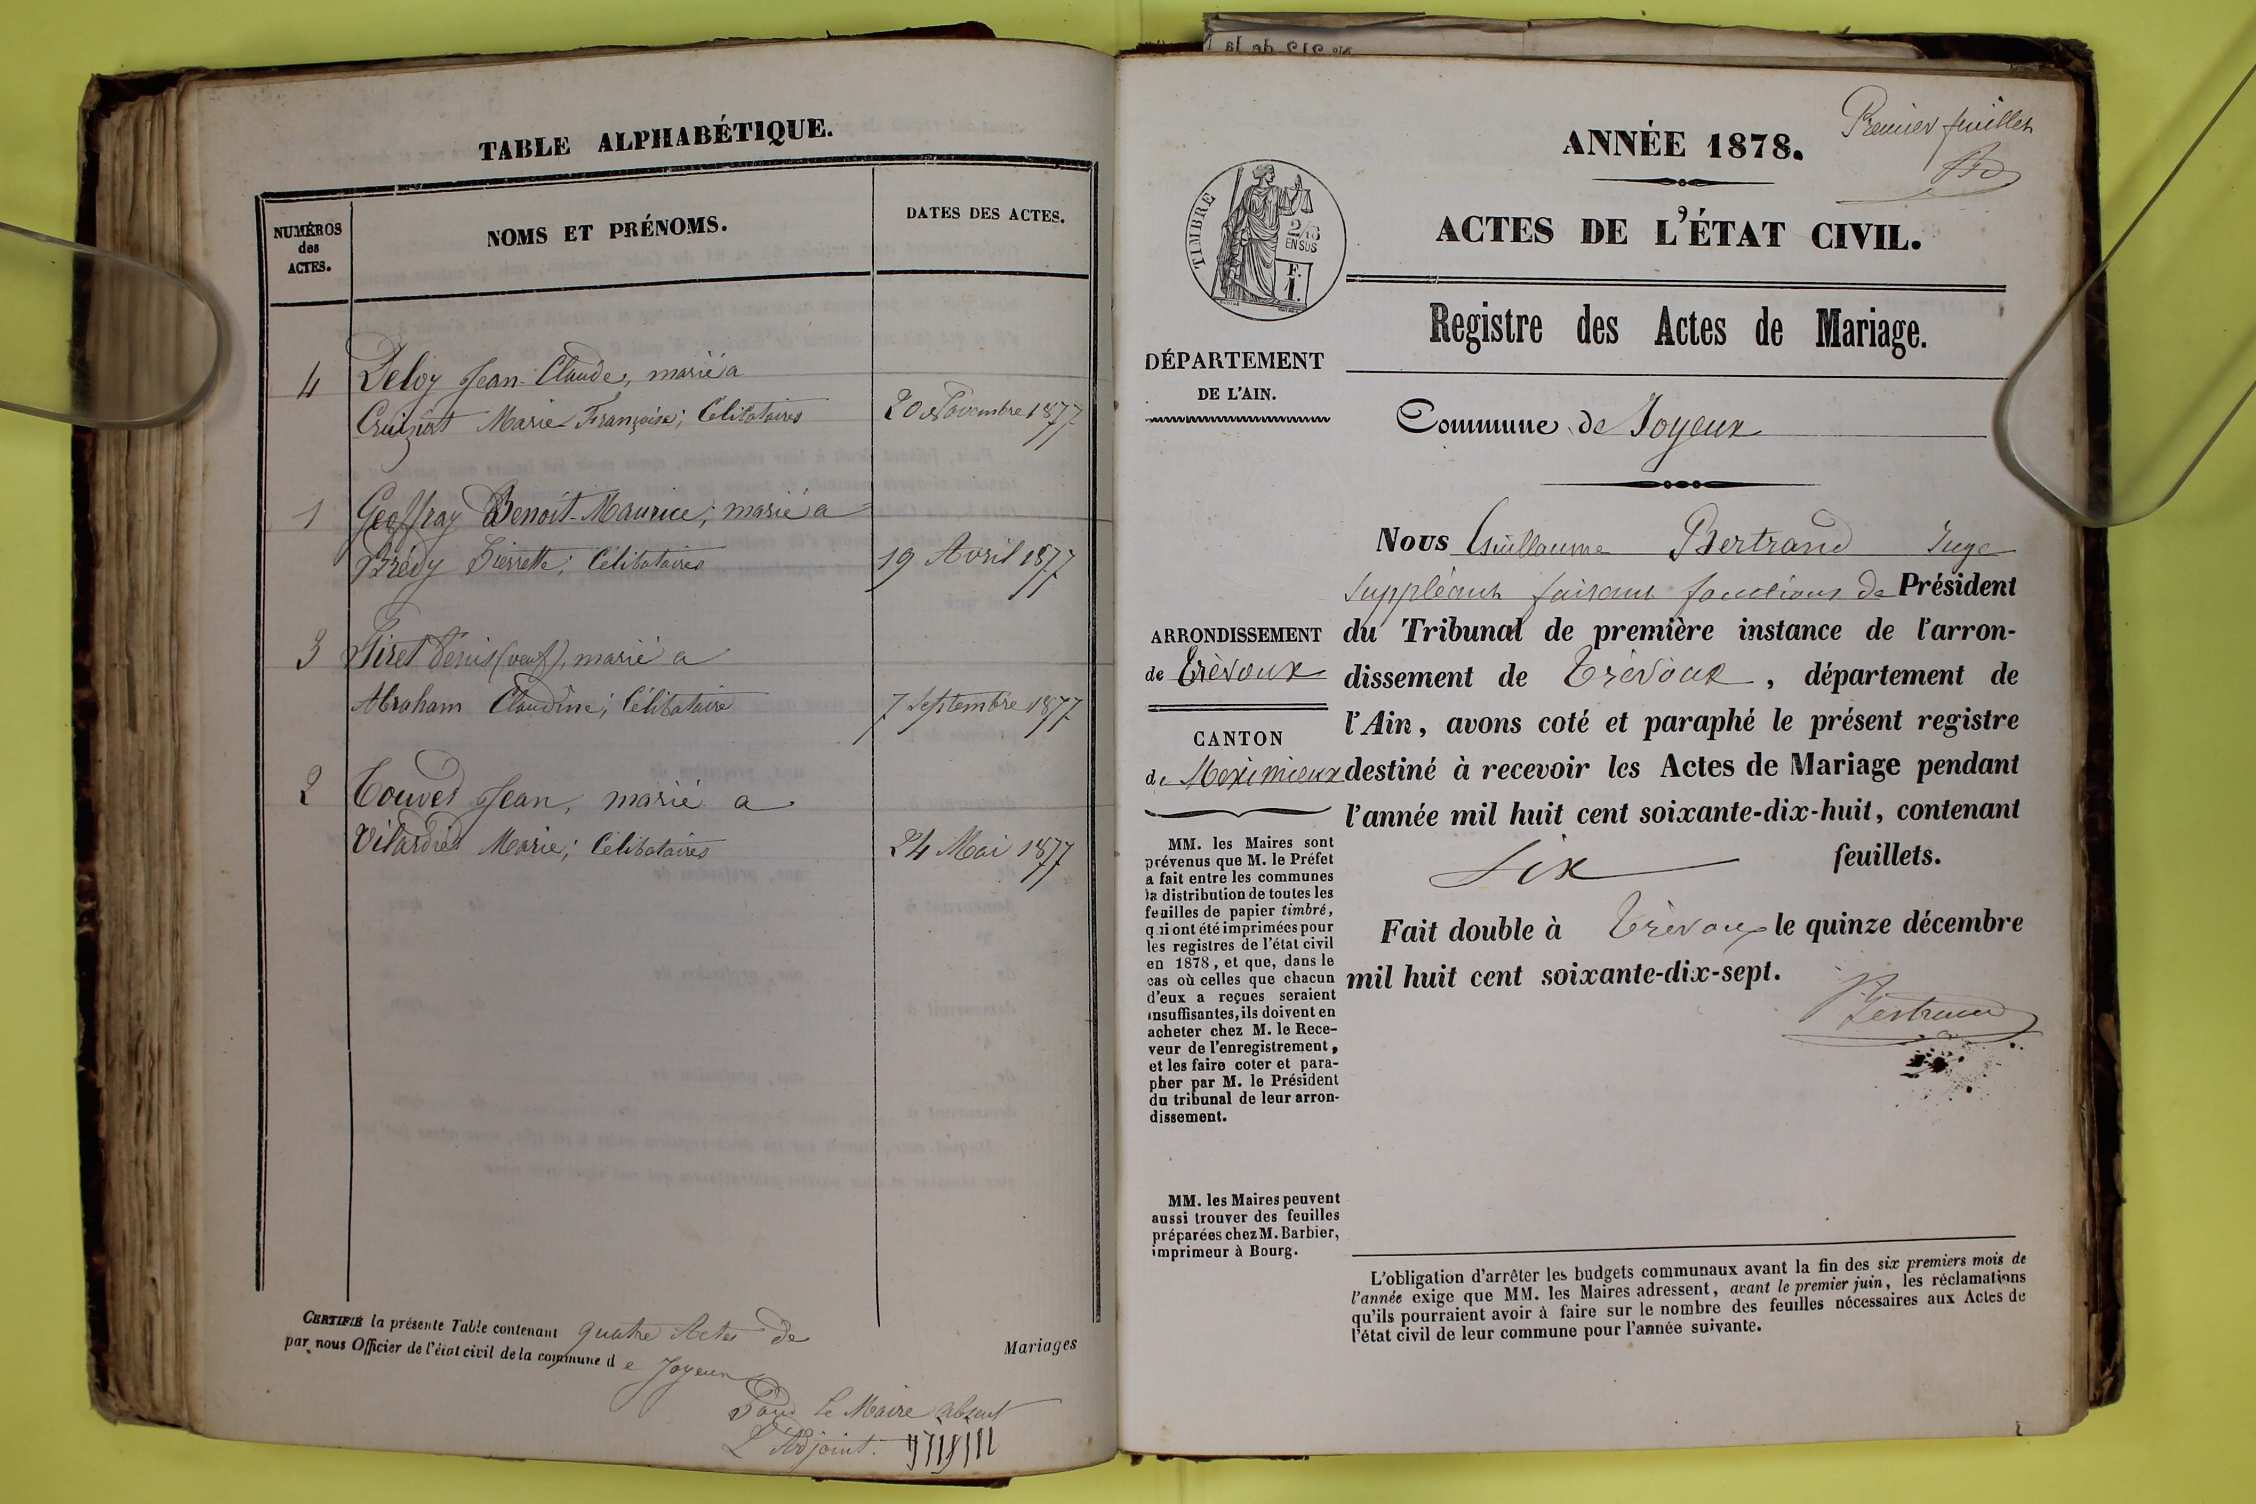 TABLE ALPHABÉTIQUE.
NUMÉROS
des
ACTES.
NOMS ET PRÉNOMS.
DATES DES ACTES.
4 Deloy Jean-Claude, marié a
Marie Françoise; Célibataires 20 Novembre 1877
1 Geoffray Benoît-Maurice; marié a
Brédy Pierrette; Célibataires 19 Avril 1877
3 Tiret Dénis (veuf), marié a
Abraham Claudine; Célibataire 7 Septembre 1877
2 Touvet Jean, marié a
Marie; Célibataires 24 Mai 1877
CERTIFIÉ la présente Table contenant quatre Actes de Mariages
par nous Officier de l'état civil de la commune de Joyeux
Pour Le Maire absent
L'Adjoint.
Nº 213 de la
Premier feuillet
ANNÉE 1878.
ACTES DE L'ÉTAT CIVIL.
TIMBRE
2/10
EN SUS
F.
1.
Registre des Actes de Mariage.
DÉPARTEMENT
DE L'AIN.
Commune de Joyeux
ARRONDISSEMENT
de Trévoux
CANTON
de Meximieux
MM. les Maires sont
prévenus que M. le Préfet
a fait entre les communes
la distribution de toutes les
feuilles de papier timbré,
qui ont été imprimées pour
les registres de l'état civil
en 1878, et que, dans le
cas où celles que chacun
d'eux a reçues seraient
insuffisantes, ils doivent en
acheter chez M. le Rece-
veur de l'enregistrement,
et les faire coter et para-
pher par M. le Président
du tribunal de leur arron-
dissement.
MM. les Maires peuvent
aussi trouver des feuilles
préparées chez M. Barbier,
imprimeur à Bourg.
Nous Guillaume Bertrand Juge
suppléant faisant fonctions de Président
du Tribunal de première instance de l'arron-
dissement de Trévoux, département de
l'Ain, avons coté et paraphé le présent registre
destiné à recevoir les Actes de Mariage pendant
l'année mil huit cent soixante-dix-huit, contenant
six feuillets.
Fait double à Trévoux le quinze décembre
mil huit cent soixante-dix-sept.
Bertrand
L'obligation d'arrêter les budgets communaux avant la fin des six premiers mois de
l'année exige que MM. les Maires adressent, avant le premier juin, les réclamations
qu'ils pourraient avoir à faire sur le nombre des feuilles nécessaires aux Actes de
l'état civil de leur commune pour l'année suivante.